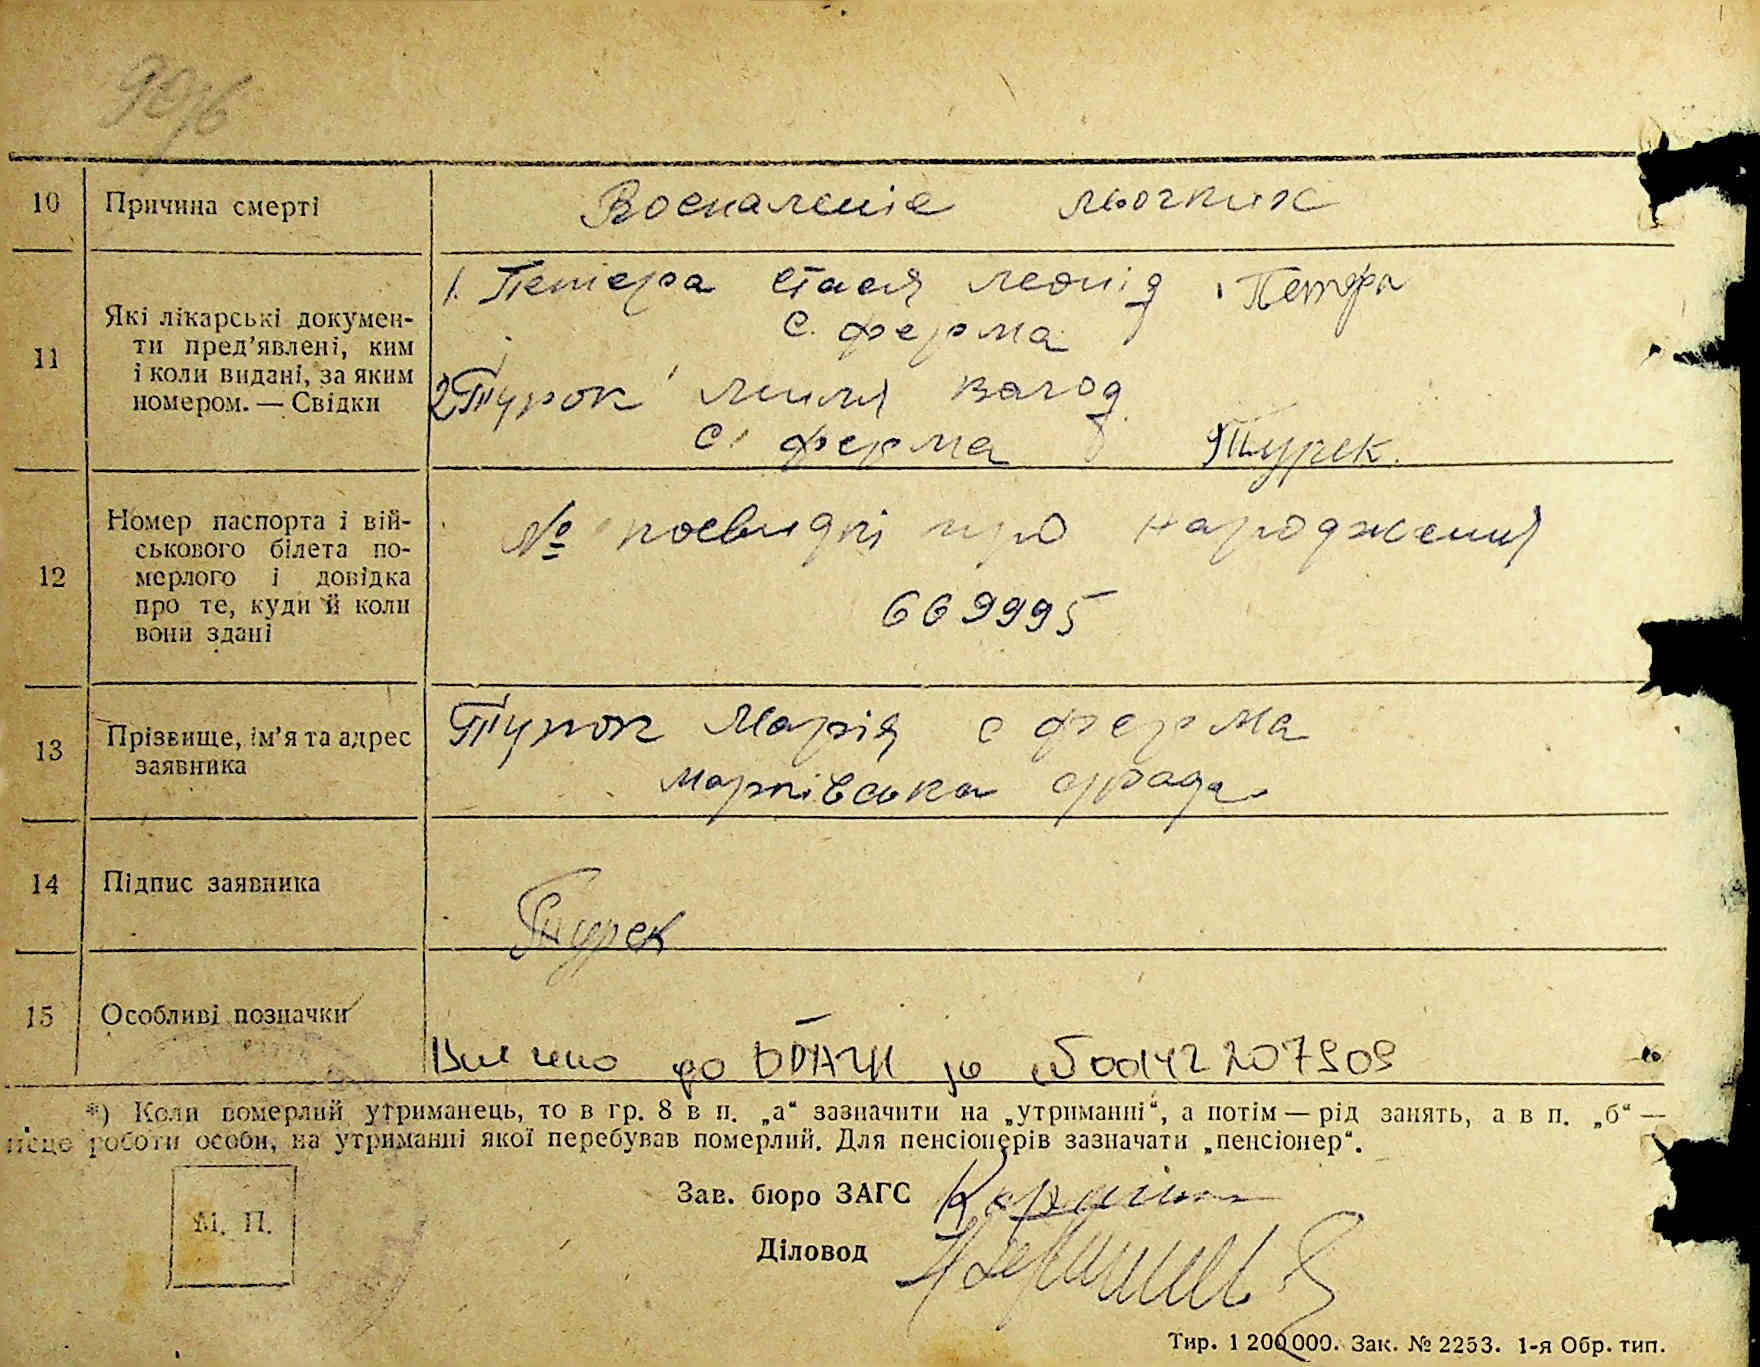 10 Причина смерті Воспаленіе льогких
11 Які лікарські докумен-
ти пред’явлені, ким
і коли видані, за яким
номером. — Свідки
1. Петера Стася Леонід Петера
с. ферма
2 Турок Миля Волод
с. ферма Турек.
12 Номер паспорта і вій-
ськового білета по-
мерлого і довідка
про те, куди й коли
вони здані
№ посвидкі про народження
669995
13 Прізвище, ім’я та адрес
заявника
Турок Марія с ферма
с/рада
14 Підпис заявника
Турек
15 Особливі позначки
Внесено до ДРАЦС за 00142207909
*) Коли померлий утриманець, то в гр. 8 в п. „а“ зазначити на „утриманні“, а потім — рід занять, а в п. „б“ —
місце роботи особи, на утриманні якої перебував померлий. Для пенсіонерів зазначати „пенсіонер“.
М. П.
Зав. бюро ЗАГС
Діловод
Тир. 1 200 000. Зак. № 2253. 1-я Обр. тип.